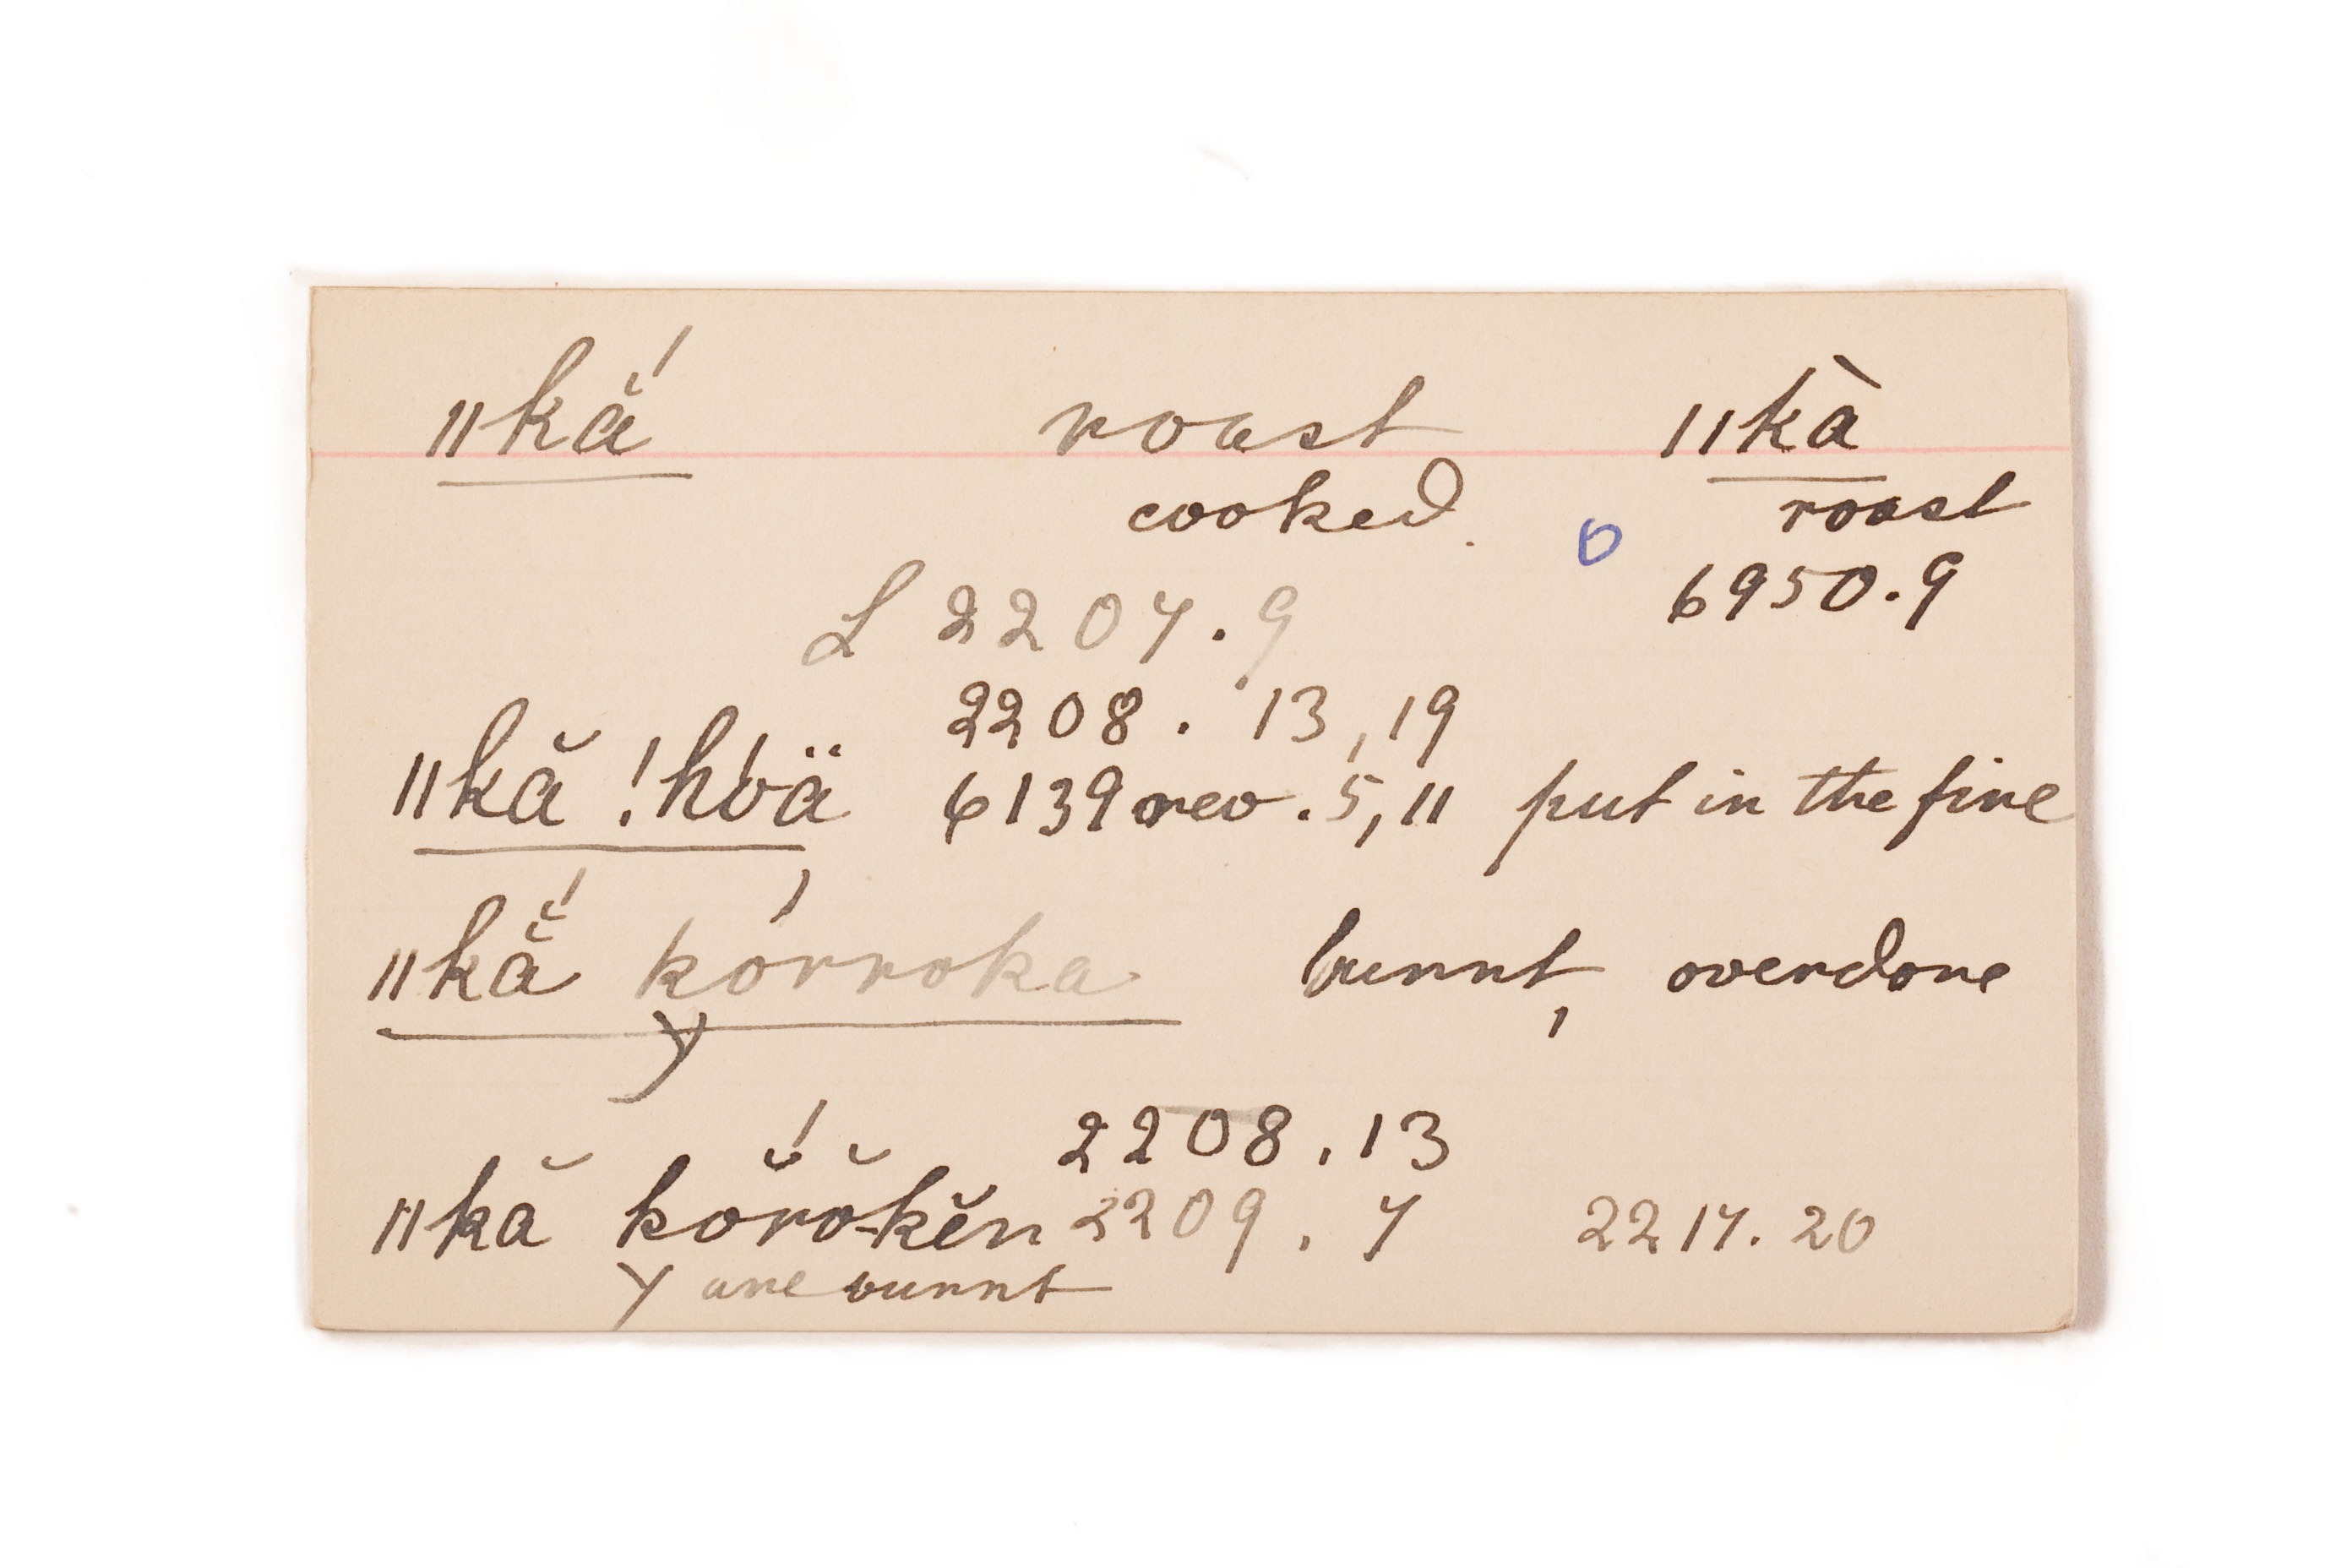 ǁkắ roast ǁkà
cooked. roast
L 2207.9 6950.9
2208. 13, 19
ǁkă !hóä 6139 rev. 5, 11 put in the fire
ǁkắ kórroka burnt, overdone
2208.13
ǁkă kŏ́rŏ-kĕn 2209.7 2217.20
are burnt